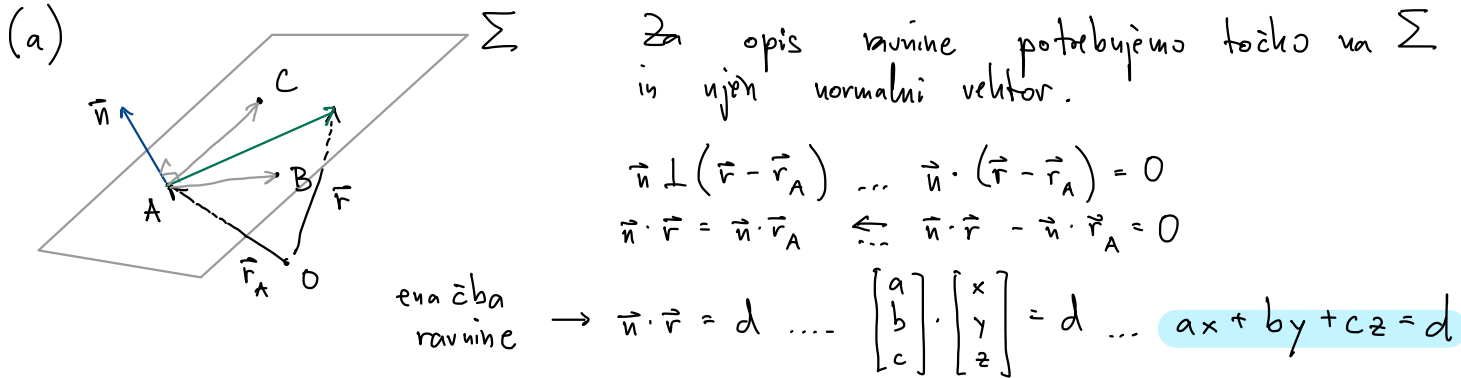 (a)
Σ
C
n⃗
B
A
r⃗
r⃗_A
O
Za opis ravnine potrebujemo točko na Σ
in njen normalni vektor.
n⃗ ⊥ (r⃗ - r⃗_A) ... n⃗ · (r⃗ - r⃗_A) = 0
n⃗ · r⃗ = n⃗ · r⃗_A ⇠ n⃗ · r⃗ - n⃗ · r⃗_A = 0
enačba
ravnine → n⃗ · r⃗ = d .... [a b c] · [x y z] = d ... ax + by + cz = d